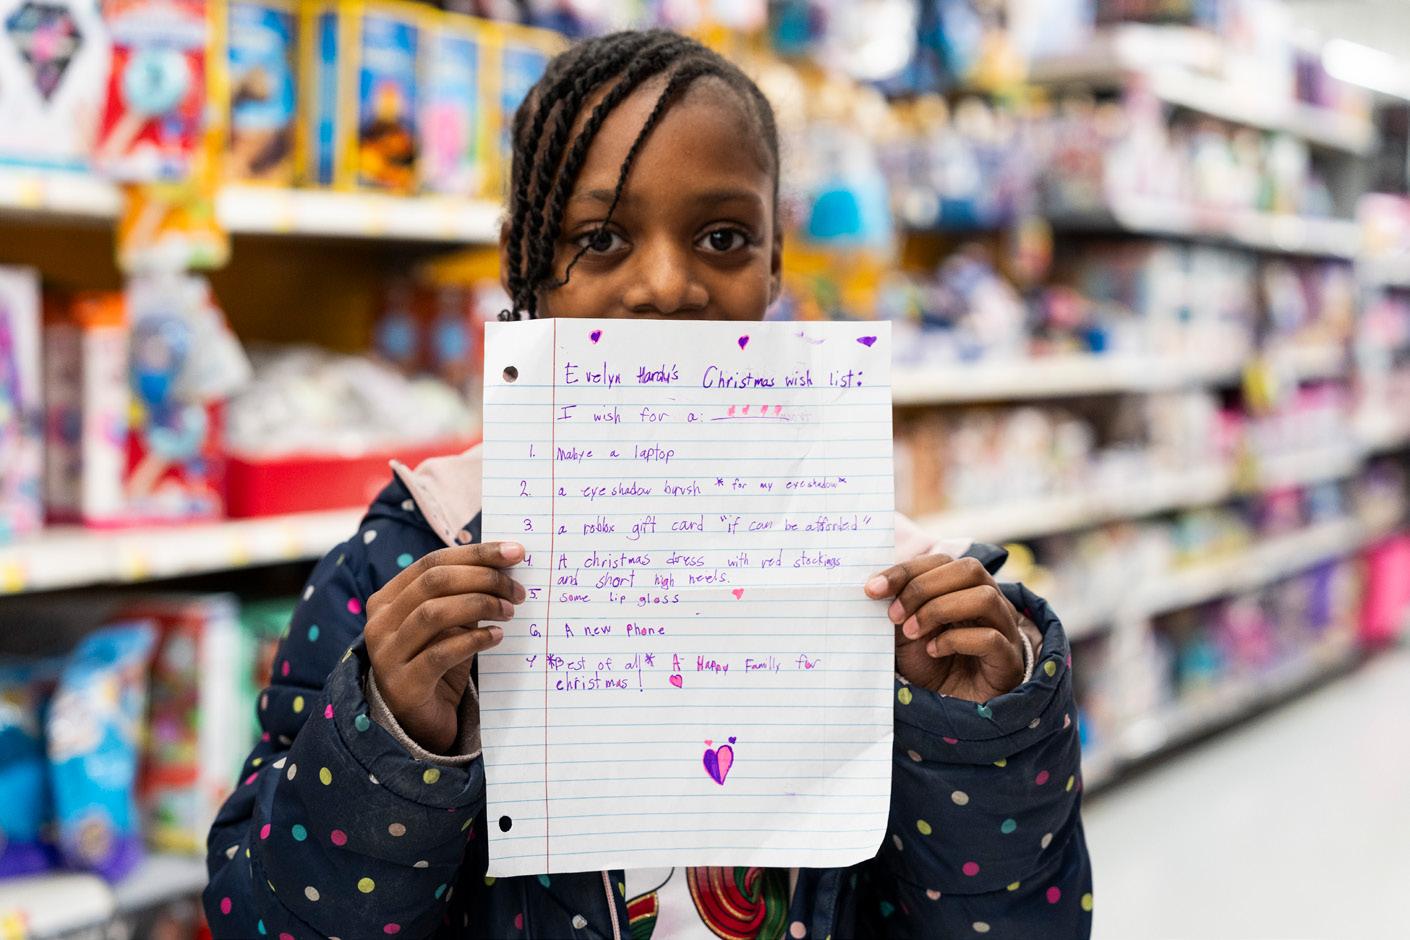 Evelyn Hardy's Christmas wish list:
I wish for a:
1. Mabye a laptop
2. a eyeshadow byrush *for my eyeshadow*
3. a roblox gift card "if can be afforded"
4. A christmas dress with red stockings
and short high heels.
5. some lip gloss
6. A new phone
7 *Best of all* A Happy Family for
christmas!